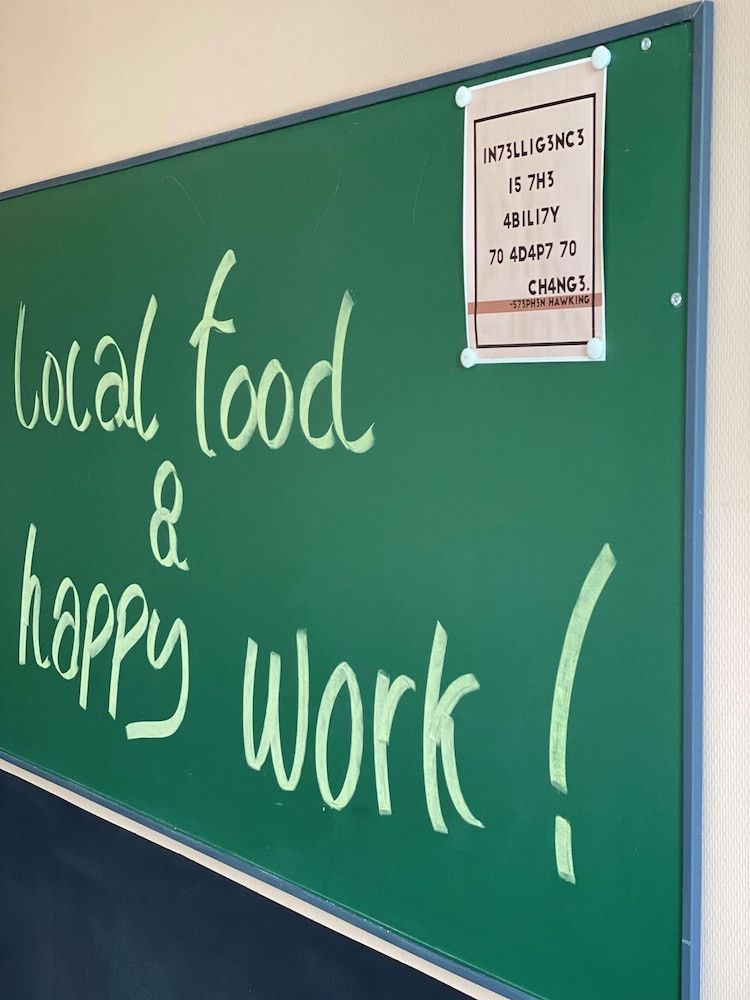 local food
&
happy work!
IN73LLIG3NC3
I5 7H3
4BILI7Y
70 4D4P7 70
CH4NG3.
-573PH3N HAWKING